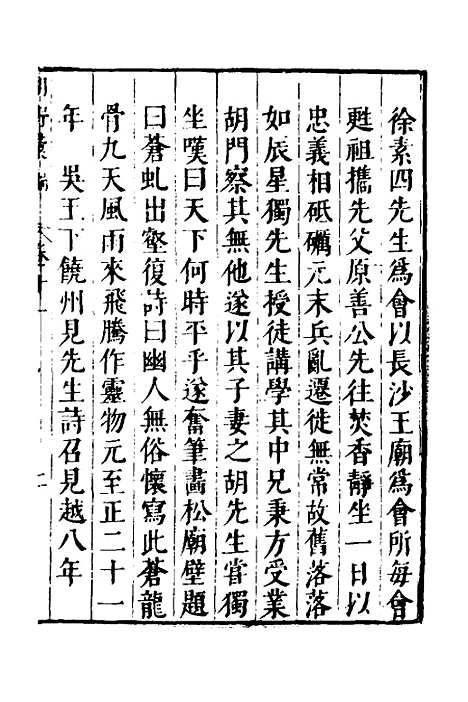 徐素四先生為會以長沙王廟為會所每會
甦祖攜先父原善公先往焚香靜坐一日以
忠義相砥礪元末兵亂遷徙無常故舊落落
如辰星獨先生授徒講學其中兄秉方受業
胡門察其無他遂以其子妻之胡先生嘗獨
坐嘆曰天下何時平乎遂奮筆畫松廟壁題
曰蒼虬出壑復詩曰幽人無俗懷寫此蒼龍
骨九天風雨來飛騰作靈物元至正二十一
年　吳王下饒州見先生詩召見越八年